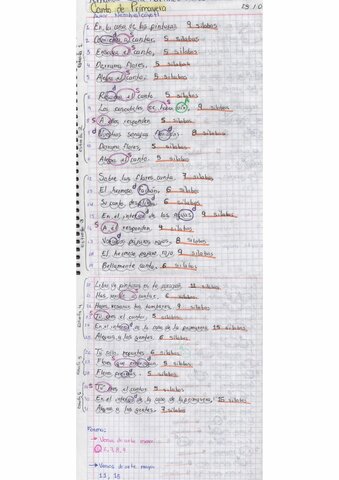 Canto de Primavera
Autor: Nezahualcóyotl
1 En la casa de las pinturas 9 silabas
2 Comienza a cantar, 5 silabas
3 Ensaya el canto, 5 silabas
4 Derrama flores, 5 silabas
5 Alegra el canto. 5 silabas
6 Resuena el canto, 5 silabas
Los cascabeles se hacen oír, 9 silabas
A ellos responden 5 silabas
Nuestras sonajas floridas, 8 silabas
Derrama flores, 5 silabas
Alegra el canto. 5 silabas
12 Sobre las flores canta 7 silabas
El hermoso faisán, 6 silabas
Su canto despliega 6 silabas
15 En el interior de las aguas. 9 silabas
A él responden 5 silabas
Variados pájaros rojos, 8 silabas
El hermoso pájaro rojo 9 silabas
Bellamente canta. 6 silabas
Libro de pinturas es tu corazón, 11 silabas
Has venido a cantar, 6 silabas
Haces resonar tus tambores, 9 silabas
Tú eres el cantor. 5 silabas
En el interior de la casa de la primavera, 15 silabas
Alegras a las gentes. 6 silabas
Tú solo repartes 6 silabas
Flores que embriagan, 5 silabas
Flores preciosas. 5 silabas
Tú eres el cantor. 5 silabas
En el interior de la casa de la primavera, 15 silabas
Alegras a las gentes. 7 silabas
Forma:
→ Versos de arte menor
5, 6, 7, 8, 9
→ Versos de arte mayor
11, 15